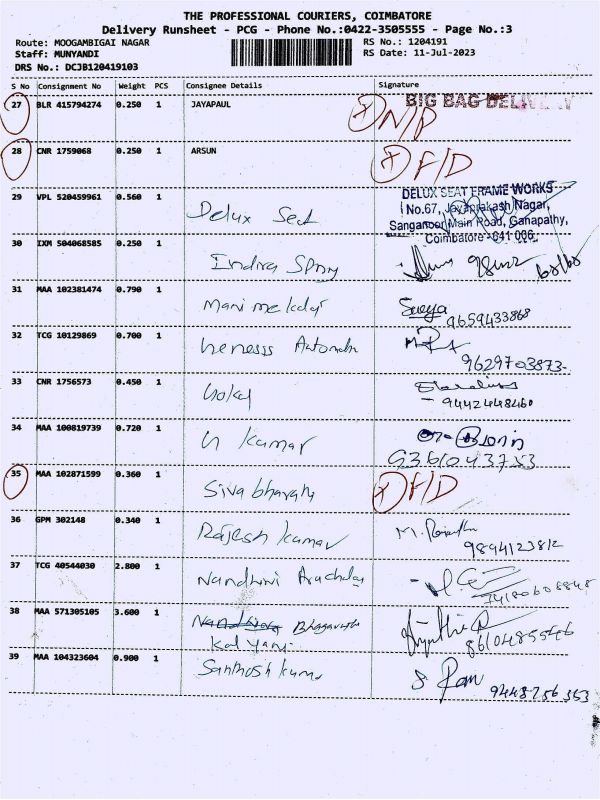 THE PROFESSIONAL COURIERS, COIMBATORE
Delivery Runsheet - PCG - Phone No.:0422-3505555 - Page No.:3
Route: MOOGAMBIGAI NAGAR RS No.: 1204191
Staff: MUNYANDI RS Date: 11-Jul-2023
DRS No.: DCJB120419103
S No Consignment No Weight PCS Consignee Details Signature
27 BLR 415794274 0.250 1 JAYAPAUL BIG BAG
N/D
28 CNR 1759068 0.250 1 ARSUN F/D
29 VPL 520459961 0.560 1 Delux Seat
DELUX SEAT FRAME WORKS
No.67, Jayaprakash Nagar,
Sanganoor Main Road, Ganapathy,
Coimbatore - 641 006.
30 IXM 504068585 0.250 1 Indra
31 MAA 102381474 0.790 1 Manimekalai Surya
9659433868
32 TCG 10129869 0.700 1
9629703873
33 CNR 1756573 0.450 1 Gokul
9442448460
34 MAA 100819739 0.720 1 Kumar
9361043753
35 MAA 102871599 0.360 1 Siva bharathy F/D
36 GPM 302148 0.340 1 Rajesh kumar M.
9894123812
37 TCG 40544030 2.800 1 Nandhini
38 MAA 571305105 3.600 1
Kalyani
39 MAA 104323604 0.900 1 Santhosh kumar S Ram
9448756353